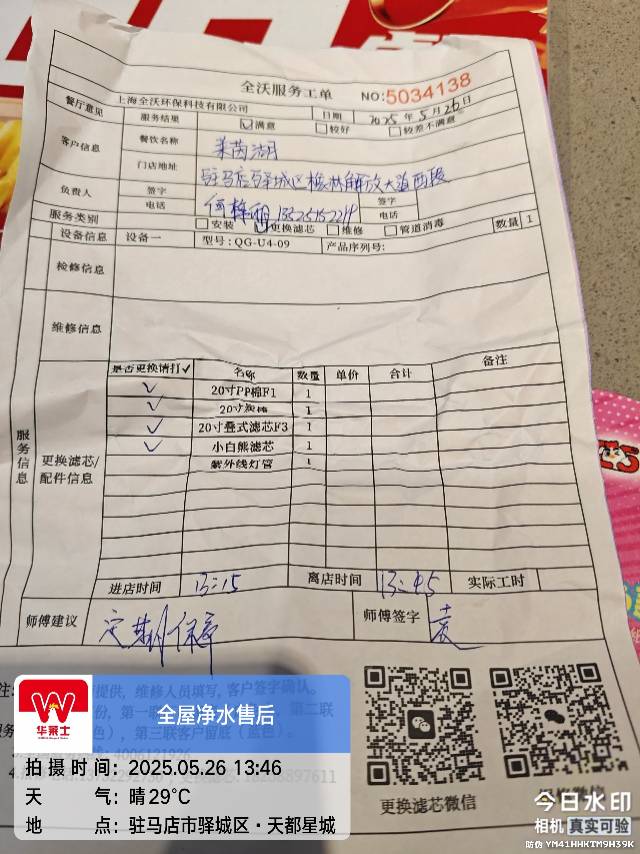 全沃服务工单
NO:5034138
上海全沃环保科技有限公司
日期 2025年5月26日
餐厅意见 服务结果 满意 较好 较差不满意
客户信息 餐饮名称 莱茵湖
门店地址 驻马店驿城区 解放大道西段
负责人 签字 签字
电话 电话
服务类别 安装 更换滤芯 维修 管道消毒 数量 1
设备信息 设备一 型号：QG-U4-09 产品序列号：
检修信息
维修信息
服务信息
更换滤芯/配件信息
是否更换请打✓ 名称 数量 单价 合计 备注
✓ 20寸PP棉F1 1
✓ 20寸炭棒 1
✓ 20寸叠式滤芯F3 1
✓ 小白熊滤芯 1
紫外线灯管 1
进店时间 13:15 离店时间 13:45 实际工时
师傅建议 定期保养 师傅签字 袁
提供，维修人员填写，客户签字确认。
第二联
，第三联客户留底（蓝色）。
更换滤芯微信
华莱士
全屋净水售后
拍摄时间：2025.05.26 13:46
天 气：晴29℃
地 点：驻马店市驿城区·天都星城
今日水印
相机 真实可验
防伪 YM41HHKTM9H39K